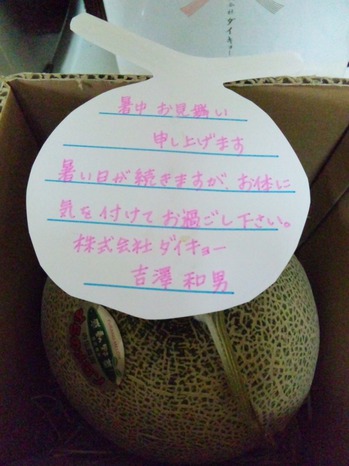 ダイキョー
暑中お見舞い
申し上げます
暑い日が続きますが、お体に
気を付けてお過ごし下さい。
株式会社ダイキョー
吉澤和男